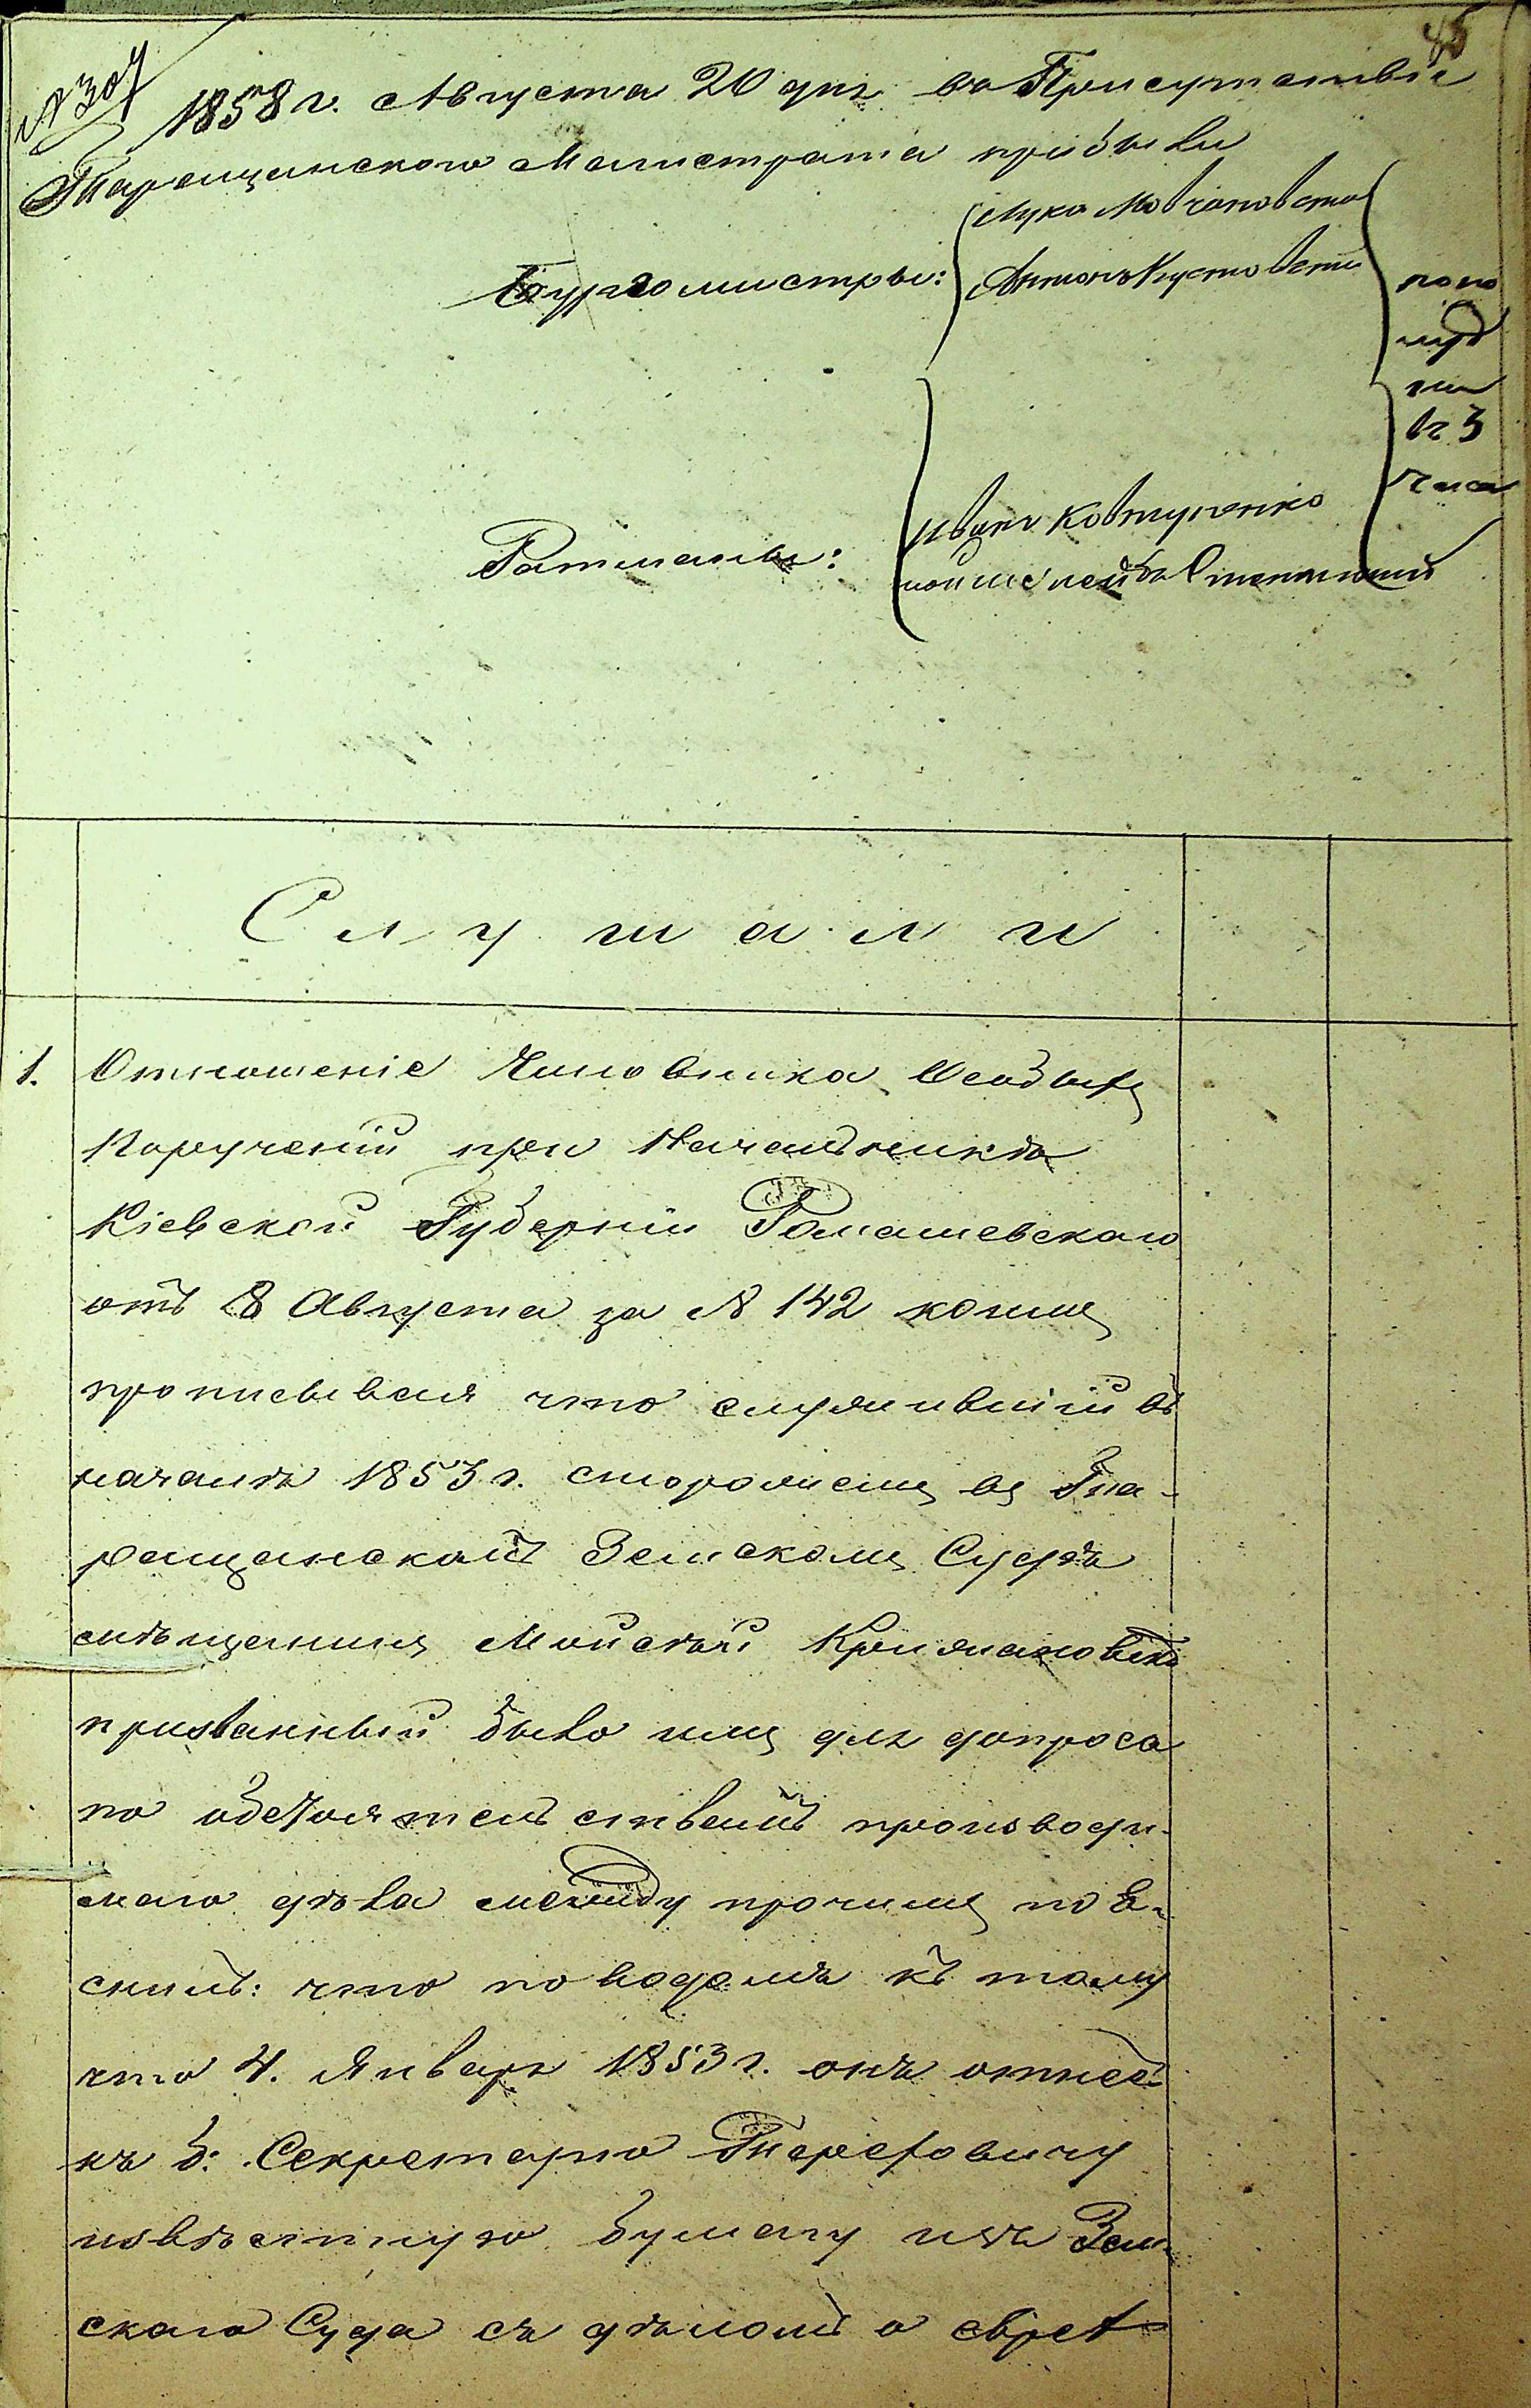 45
№ 307
1858 г. Августа 20 дня въ Присутствіе
Таращанского Магистрата прибыли
Бургомистры:
Лука
Антонъ
попо
луд
ни
въ 3
часа
Ратманы:
Иванъ Ковтуненко
Слушали
1. Отношеніе Чиновника Особыхъ
Порученій при Начальникѣ
Кіевской Губерніи Ромашевскаго
отъ 8 Августа за № 142 коимъ
прописывая что служившій въ
началѣ 1853 г. сторожемъ въ Та-
ращанскомъ Земскомъ Судѣ
мѣщанинъ Мойсѣй Крижановскій
призванный было имъ для допроса
по обстоятельствамъ производи-
маго дѣла между прочимъ поя-
снилъ: что поводомъ къ тому
что 4. Января 1853 г. онъ отнесъ
къ б: Секретарю Тереховичу
извѣстную бумагу изъ Зем-
скаго Суда съ дѣломъ о еврея